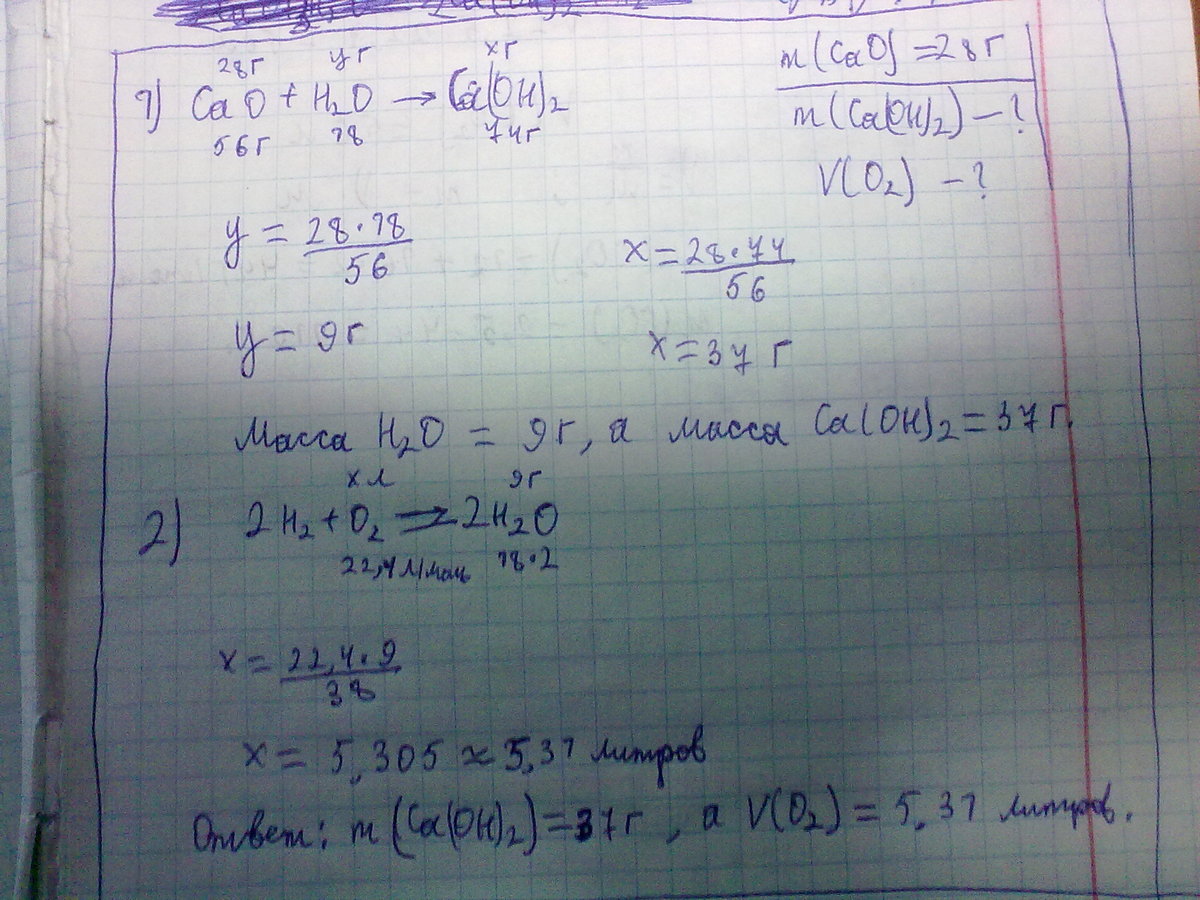 28г уг хг
1) CaO + H₂O → Ca(OH)₂
56г 18 74г
m(CaO) = 28г
m(Ca(OH)₂) – ?
V(O₂) – ?
y = 28·18/56
x = 28·74/56
y = 9г
x = 37 г
Масса H₂O = 9г, а масса Ca(OH)₂ = 37г.
х л 9г
2) 2H₂ + O₂ → 2H₂O
22,4 л/моль 18·2
x = 22,4·9/38
x = 5,305 ≈ 5,31 литров
Ответ: m(Ca(OH)₂) = 37г, а V(O₂) = 5,31 литров.